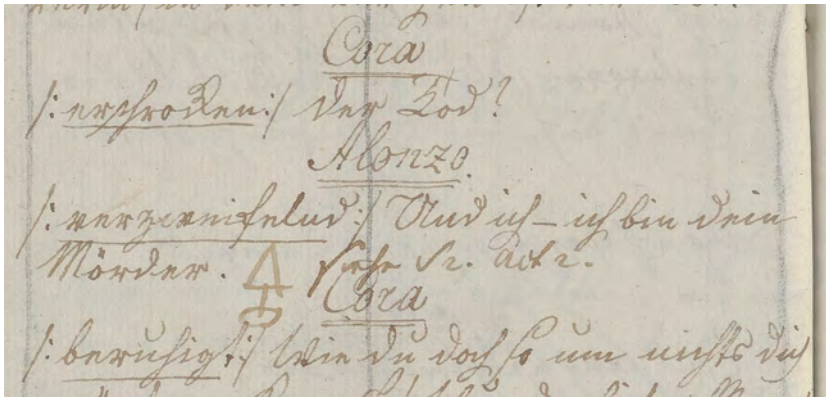 Cora
/: erschrocken :/ der Tod?
Alonzo.
/: verzweifelnd :/ Und ich – ich bin dein
Mörder. siehe
Cora
/: beruhigt :/ Wie du doch so um nichts dich